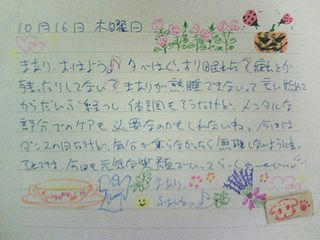 10月16日 木曜日
まなり、おはよう♪ 夕べはぐっすり眠れた? 疲れとか
残ったりしてない? まなりが熟睡できないって言い始めて
からだいぶ経つし、体調もそうだけど、メンタルな
部分でのケアも必要なのかもしれないね。今日は
ダンスの日だけど、気分が乗らなかったら無理しないようにね。
でわでわ、今日も元気な笑顔でいってらっしゃーい
まなり